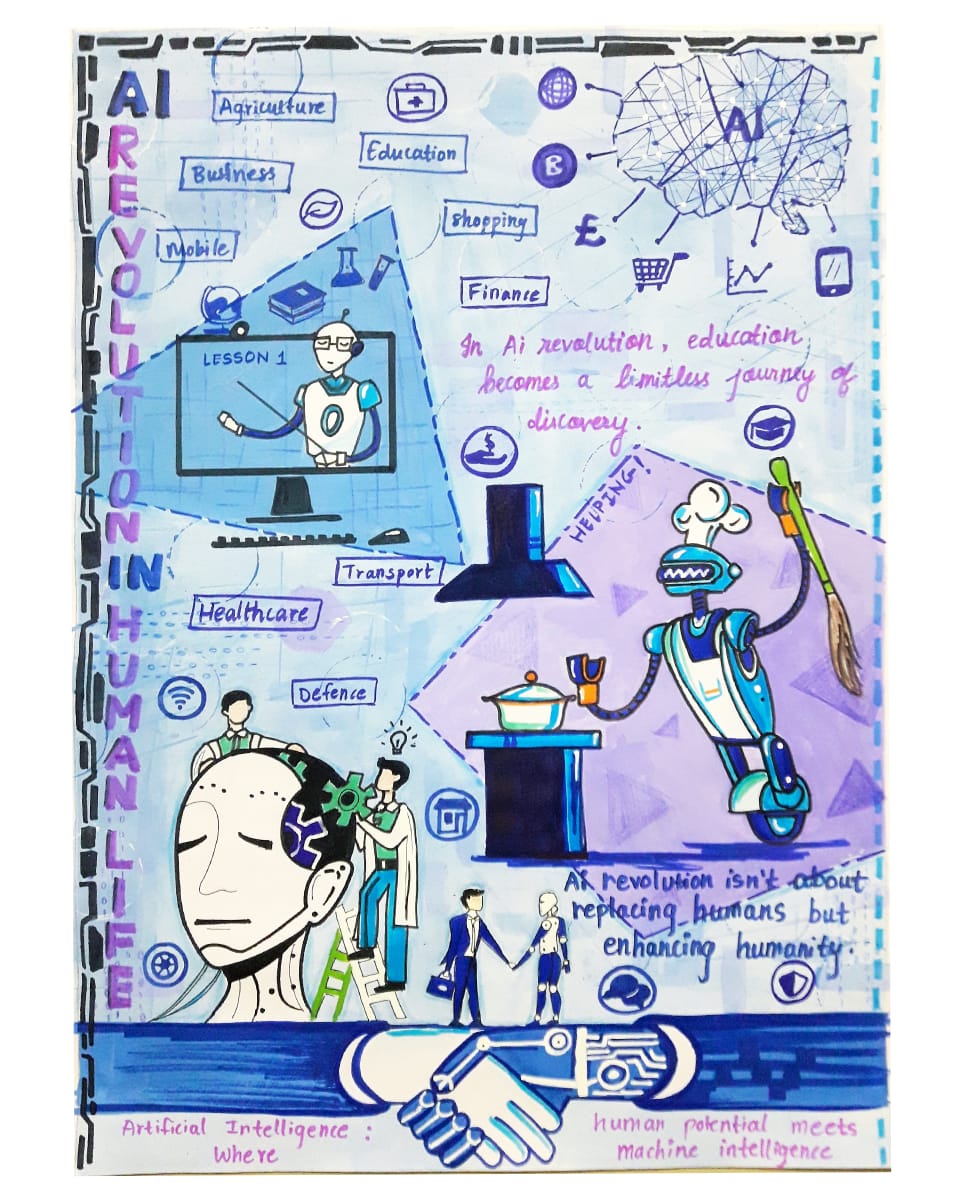 AI REVOLUTION IN HUMAN LIFE
Agriculture
Education
Business
Shopping
Mobile
Finance
AI
B
£
LESSON 1
In Ai revolution, education
becomes a limitless journey of
discovery.
HELPING!
Transport
Healthcare
Defence
Ai revolution isn't about
replacing humans but
enhancing humanity.
Artificial Intelligence :
Where
human potential meets
machine intelligence